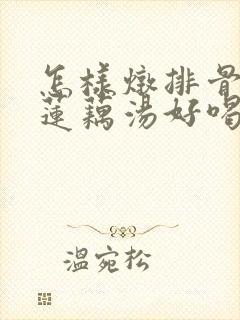 怎样燉排骨
蓮藕湯好喝
溫宛松